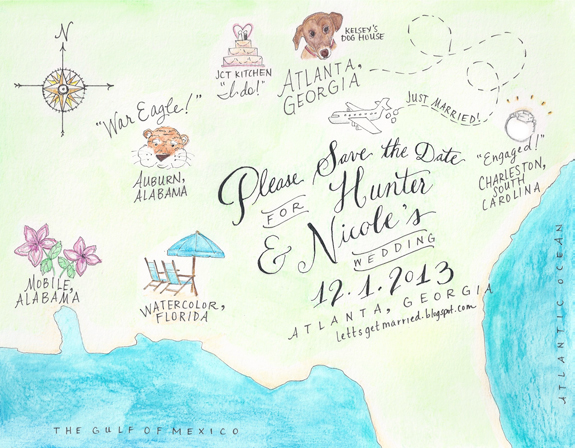 N
"War Eagle!"
AUBURN,
ALABAMA
JCT KITCHEN
"I do!"
KELSEY'S
DOG HOUSE
ATLANTA,
GEORGIA
JUST MARRIED!
"Engaged!"
CHARLESTON,
SOUTH
CAROLINA
Please Save the Date
FOR Hunter
& Nicole's
WEDDING
12.1.2013
ATLANTA, GEORGIA
lettsgetmarried.blogspot.com
MOBILE,
ALABAMA
WATERCOLOR,
FLORIDA
THE GULF OF MEXICO
ATLANTIC OCEAN